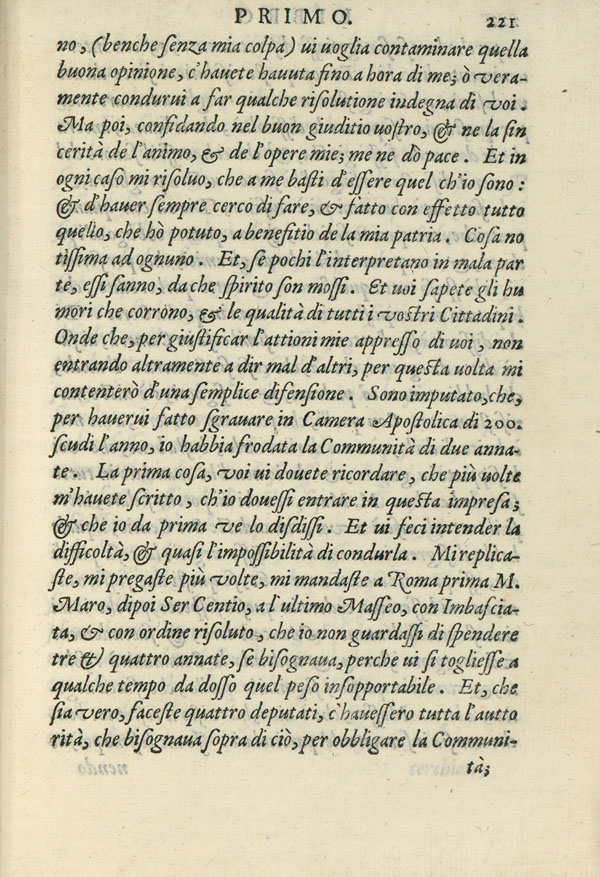 PRIMO. 221
no, (benche senza mia colpa) ui uoglia contaminare quella
buona opinione, c'hauete hauuta fino a hora di me; ò vera-
mente condurui a far qualche risolutione indegna di voi.
Ma poi, confidando nel buon giuditio uostro, & ne la sin
cerità de l'animo, & de l'opere mie; me ne dò pace. Et in
ogni caso mi risoluo, che a me basti d'essere quel ch'io sono:
& d'hauer sempre cerco di fare, & fatto con effetto tutto
quello, che hò potuto, a benefitio de la mia patria. Cosa no
tissima ad ognuno. Et, se pochi l'interpretano in mala par
te, essi sanno, da che spirito son mossi. Et uoi sapete gli hu
mori che corrono, & le qualità di tutti i vostri Cittadini.
Onde che, per giustificar l'attioni mie appresso di uoi, non
entrando altramente a dir mal d'altri, per questa uolta mi
contenterò d'una semplice difensione. Sono imputato, che,
per hauerui fatto sgrauare in Camera Apostolica di 200.
scudi l'anno, io habbia frodata la Communità di due anna-
te. La prima cosa, voi ui douete ricordare, che più uolte
m'hauete scritto, ch'io douessi entrare in questa impresa;
& che io da prima ve lo disdissi. Et ui feci intender la
difficoltà, & quasi l'impossibilità di condurla. Mi replica-
ste, mi pregaste più volte, mi mandaste a Roma prima M.
Maro, dipoi Ser Centio, a l'ultimo Masseo, con Imbascia-
ta, & con ordine risoluto, che io non guardassi di spendere
tre & quattro annate, se bisognaua, perche ui si togliesse a
qualche tempo da dosso quel peso insopportabile. Et, che
sia vero, faceste quattro deputati, c'hauessero tutta l'autto
rità, che bisognaua sopra di ciò, per obbligare la Communi-
tà;